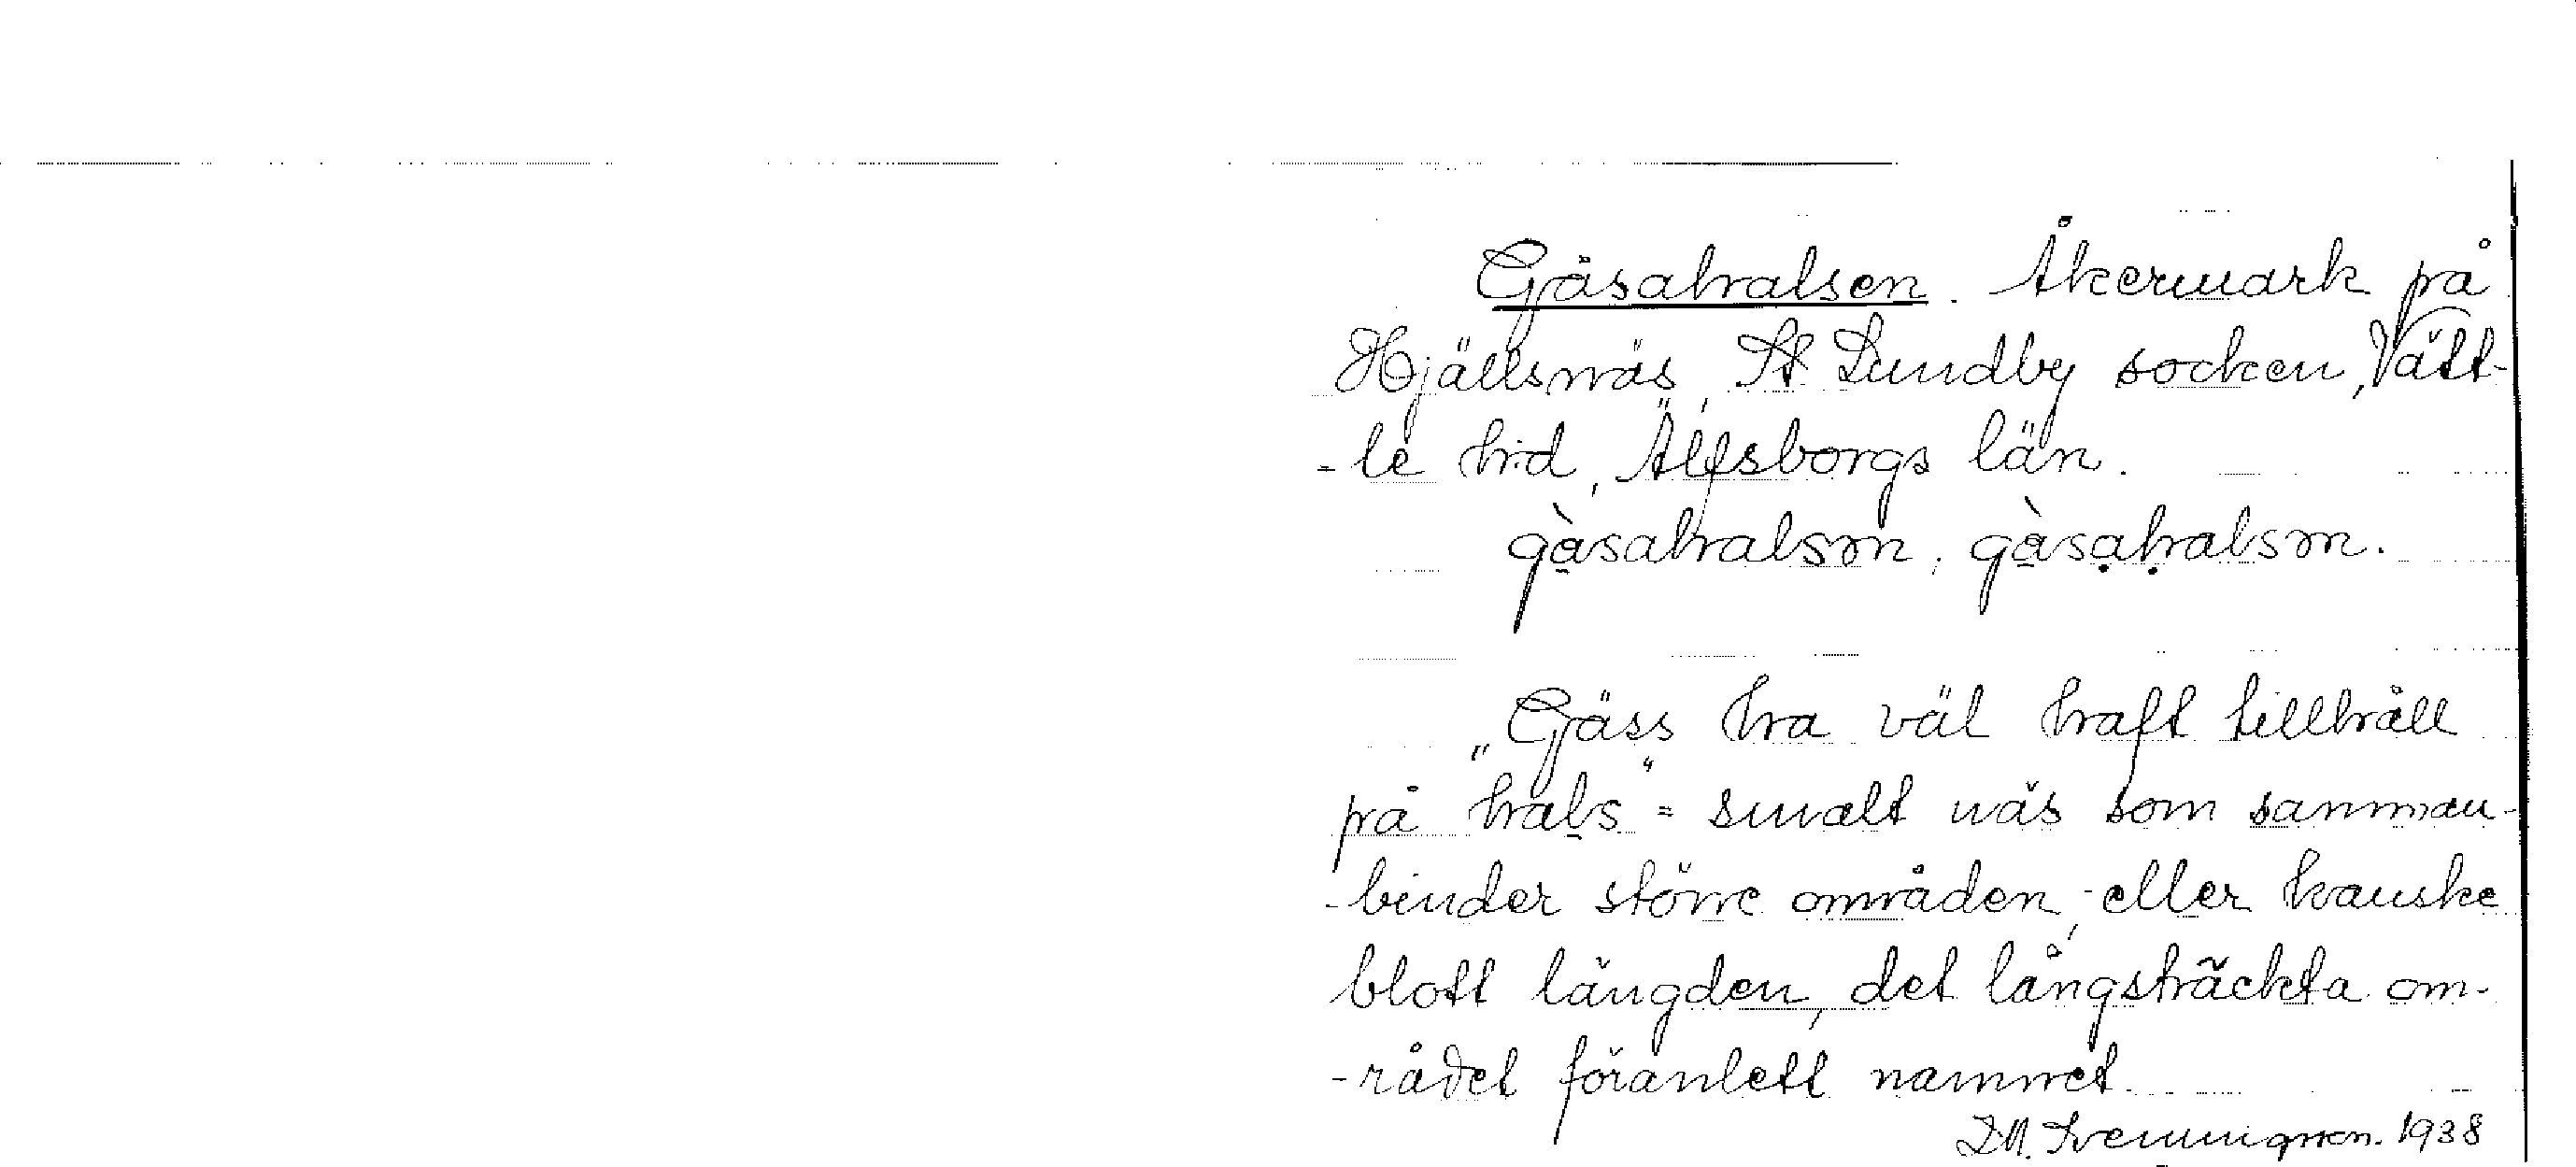 Gåsahalsen. Åkermark på
Hjällsnäs, St Lundby socken, Vätt-
-le hd, Älfsborgs län.
gàsahalsən, gàsạḥalsən.
„Gäss ha väl haft tillhåll
på hals“ = smalt näs som samman-
-binder större områden, - eller kanske
blott längden, det långsträckta om-
-rådet föranlett namnet.
1938